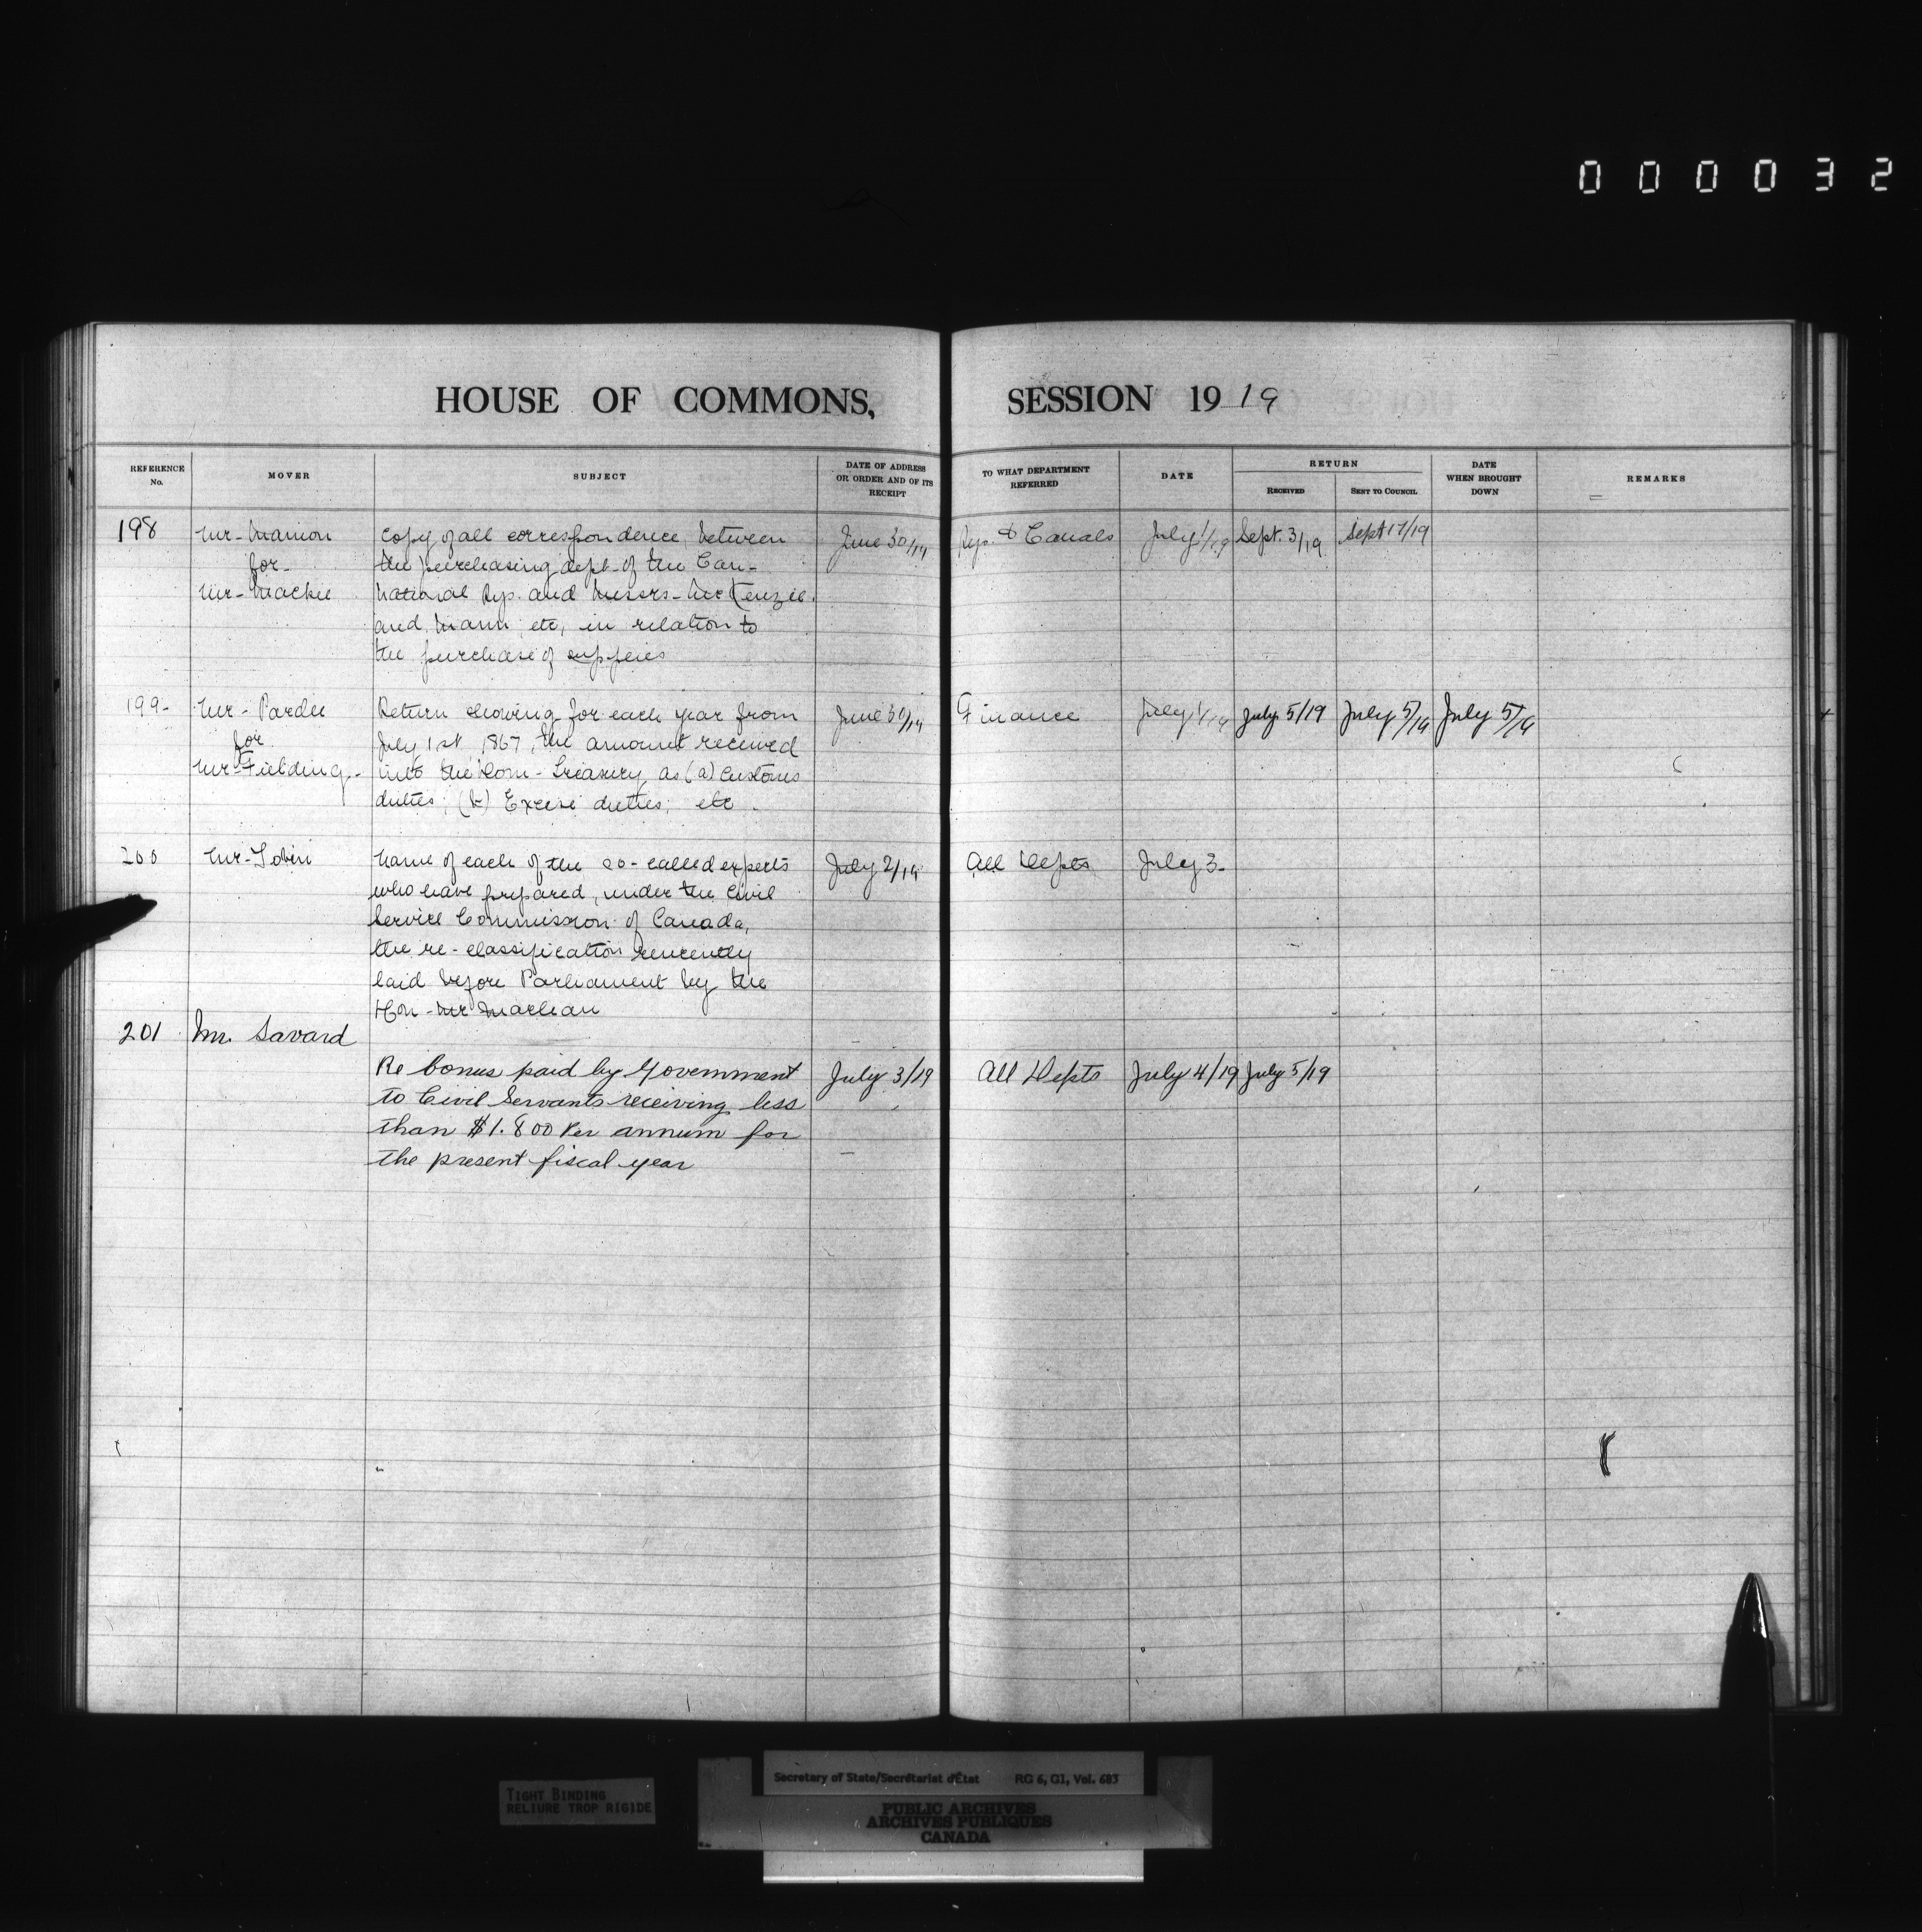 000032
HOUSE OF COMMONS, SESSION 1919
REFERENCE No. MOVER SUBJECT DATE OF ADDRESS OR ORDER AND OF ITS RECEIPT TO WHAT DEPARTMENT REFERRED DATE RETURN RECEIVED SENT TO COUNCIL DATE WHEN BROUGHT DOWN REMARKS
198 Mr. Manion Copy of all correspondence between June 30/19 Rys. & Canals July 1/19 Sept. 3/19 Sept 17/19
for the purchasing dept. of the Can-
Mr. Mackie National Rys. and Messrs. McKenzie
and Mann, etc, in relation to
the purchase of supplies
199- Mr. Pardee Return showing for each year from June 30/19 Finance July 1/19 July 5/19 July 5/19 July 5/19
for July 1st, 1867, the amount received
Mr. Fielding. into the Dom. Treasury as (a) customs
duties; (b) Excise duties; etc.
200 Mr. Tobin Name of each of the so-called experts July 2/19 All Depts July 3.
who have prepared, under the Civil
Service Commission of Canada,
the re-classification rencently
laid before Parliament by the
Hon. Mr Maclean
201 Mr. Savard
Re bonus paid by Government July 3/19 All Depts July 4/19 July 5/19
to Civil Servants receiving less
than $1.800 Per annum for
the present fiscal year
TIGHT BINDING
RELIURE TROP RIGIDE
Secretary of State/Secrétariat d'État RG 6, G1, Vol. 683
PUBLIC ARCHIVES
ARCHIVES PUBLIQUES
CANADA